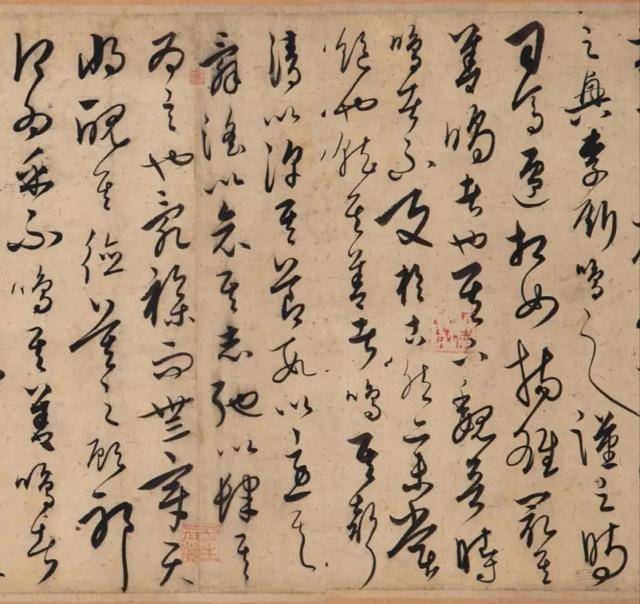 之興李斯鳴之漢之時
司馬遷相如揚雄最其
善鳴者也其下魏晉時
鳴者不及於古然亦未嘗
絕也就其善者鳴其聲
清以浮其節數以急其
辭淫以哀其志弛以肆其
為言也亂雜而無章天
將醜其德莫之顧邪
何為乎不鳴其善鳴者